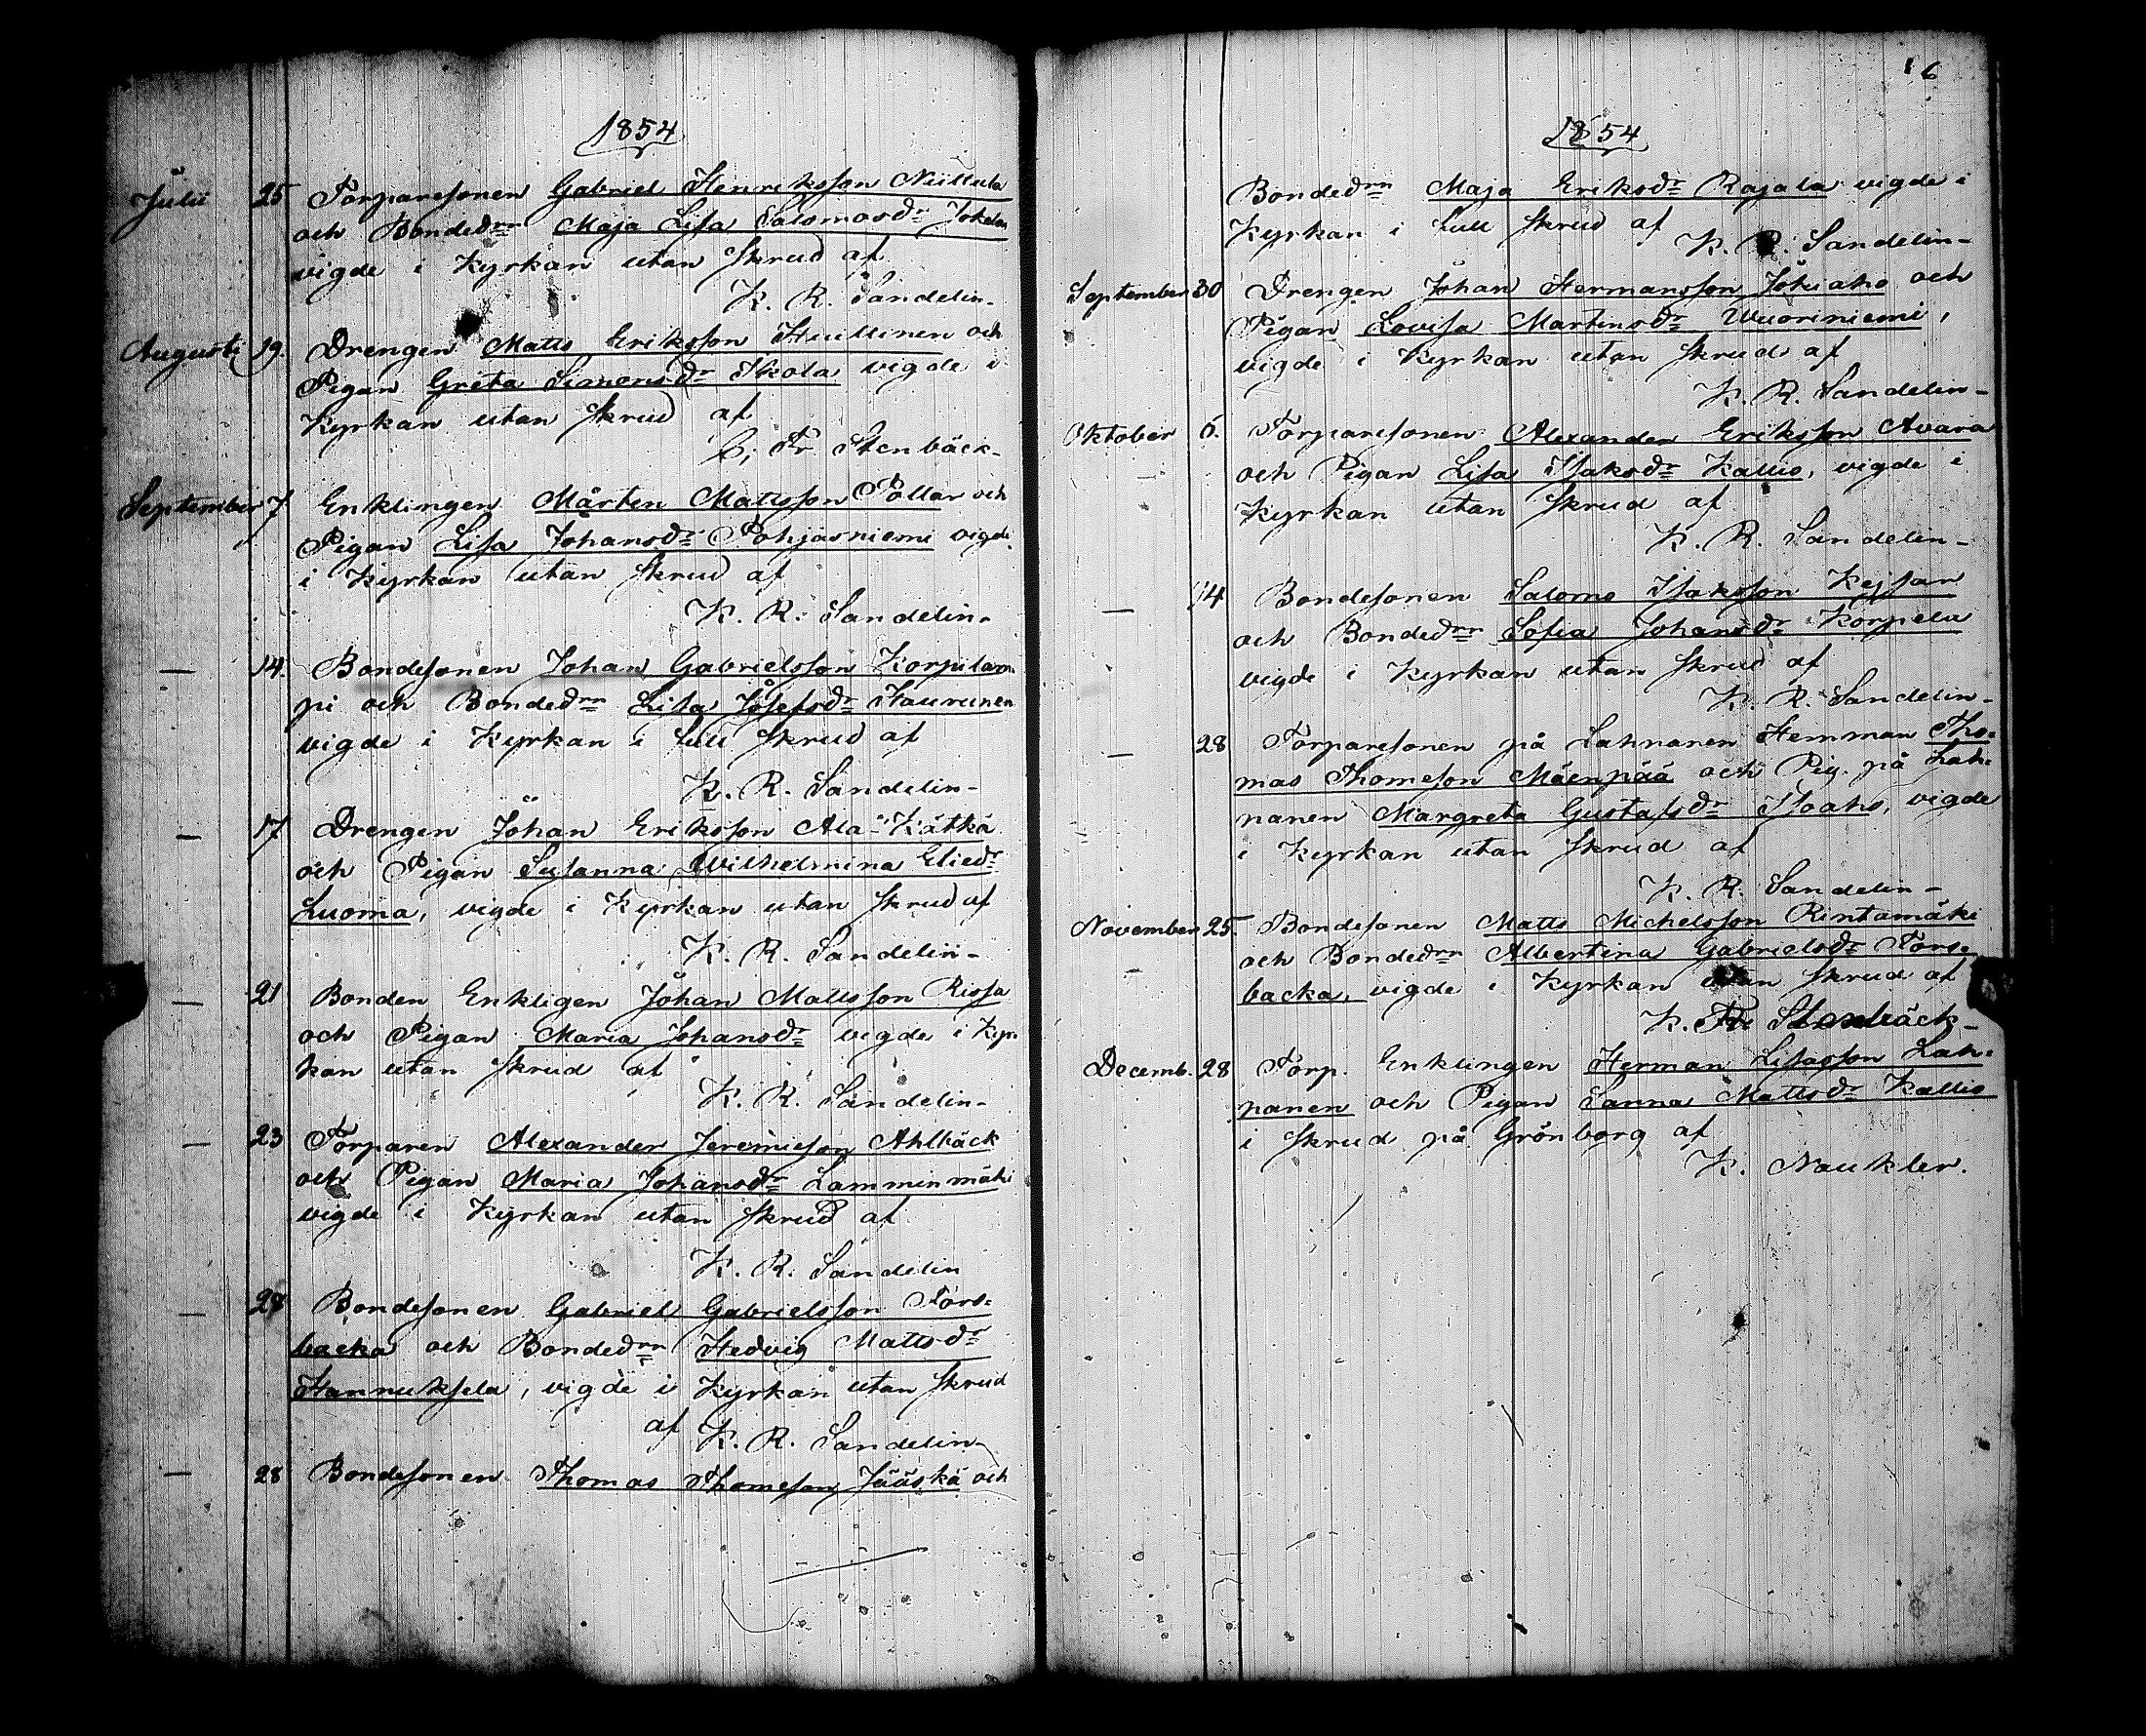 1854
Julii 25 Torparesonen Gabriel Henriksson Niittula
och Bondedrn Maja Lisa Salomosdr Jokela
vigde i Kyrkan utan skrud af
K. R. Sandelin-
Augusti 19. Drengen Matts Eriksson Hullinen och
Pigan Greta Simonsdr Skola vigde i
Kyrkan utan skrud af
C. Fr Stenbäck-
September 7 Enklingen Mårten Mattsson Pollar och
Pigan Lisa Johansdr Pohjasniemi vigde
i Kyrkan utan skrud af
K. R. Sandelin-
— 14. Bondesonen Johan Gabrielsson Korpilam
pi och Bondedrn Lisa Josefsdr Haurunen
vigde i Kyrkan i full skrud af
K. R. Sandelin-
— 17 Drengen Johan Eriksson Ala-Kätkä
och Pigan Susanna Wilhelmina Eliedr
Luoma, vigde i Kyrkan utan skrud af
K. R. Sandelin-
— 21 Bonden Enkligen Johan Mattsson Rissa
och Pigan Maria Johansdr vigde i Kyr-
kan utan skrud af
K. R. Sandelin-
— 23 Torparen Alexander Jeremieson Ahlbäck
och Pigan Maria Johansdr Lamminmäki
vigde i Kyrkan utan skrud af
K. R. Sandelin
— 28 Bondesonen Gabriel Gabrielsson Fors=
backa och Bondedrn Hedvig Mattsdr
Hannuksela, vigde i Kyrkan utan skrud
af K. R. Sandelin-
— 28 Bondesonen Thomas Thomeson Jääskä och
16
1854
Bondedrn Maja Eriksdr Rajala vigde i
Kyrkan i full skrud af
K. R. Sandelin-
September 30 Drengen Johan Hermansson Jokiaho och
Pigan Lovisa Martinsdr Wuoriniemi,
vigde i Kyrkan utan skrud af
K. R. Sandelin-
Oktober 6. Torparesonen Alexander Eriksson Avara
och Pigan Lisa Isaksdr Kallio, vigde i
Kyrkan utan skrud af
K. R. Sandelin-
— 14 Bondesonen Salomo Isaksson Kejsar
och Bondedrn Sofia Johansdr Korpela
vigde i Kyrkan utan skrud af
K. R. Sandelin-
— 28 Torparesonen på Lahnanen Hemman Tho=
mas Thomeson Mäenpää och Pig. på Lah=
nanen Margreta Gustafsdr Isoaho, vigde
i Kyrkan utan skrud af
K. R. Sandelin-
November 25. Bondesonen Matts Michelsson Rintamäki
och Bondedrn Albertina Gabrielsdr Fors=
backa, vigde i Kyrkan utan skrud af
K. Fr. Stenbäck-
Decemb. 28 Torp. Enklingen Herman Lisasson Lah=
nanen och Pigan Sanna Mattsdr Kallio
i skrud på Grönborg af
K. Naukler.